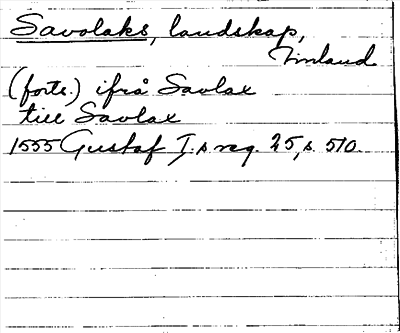 Savolaks, landskap,
Finland
(forts.) ifrå Savlax
till Savlax
1555 Gustaf I,s reg. 25, s. 510.